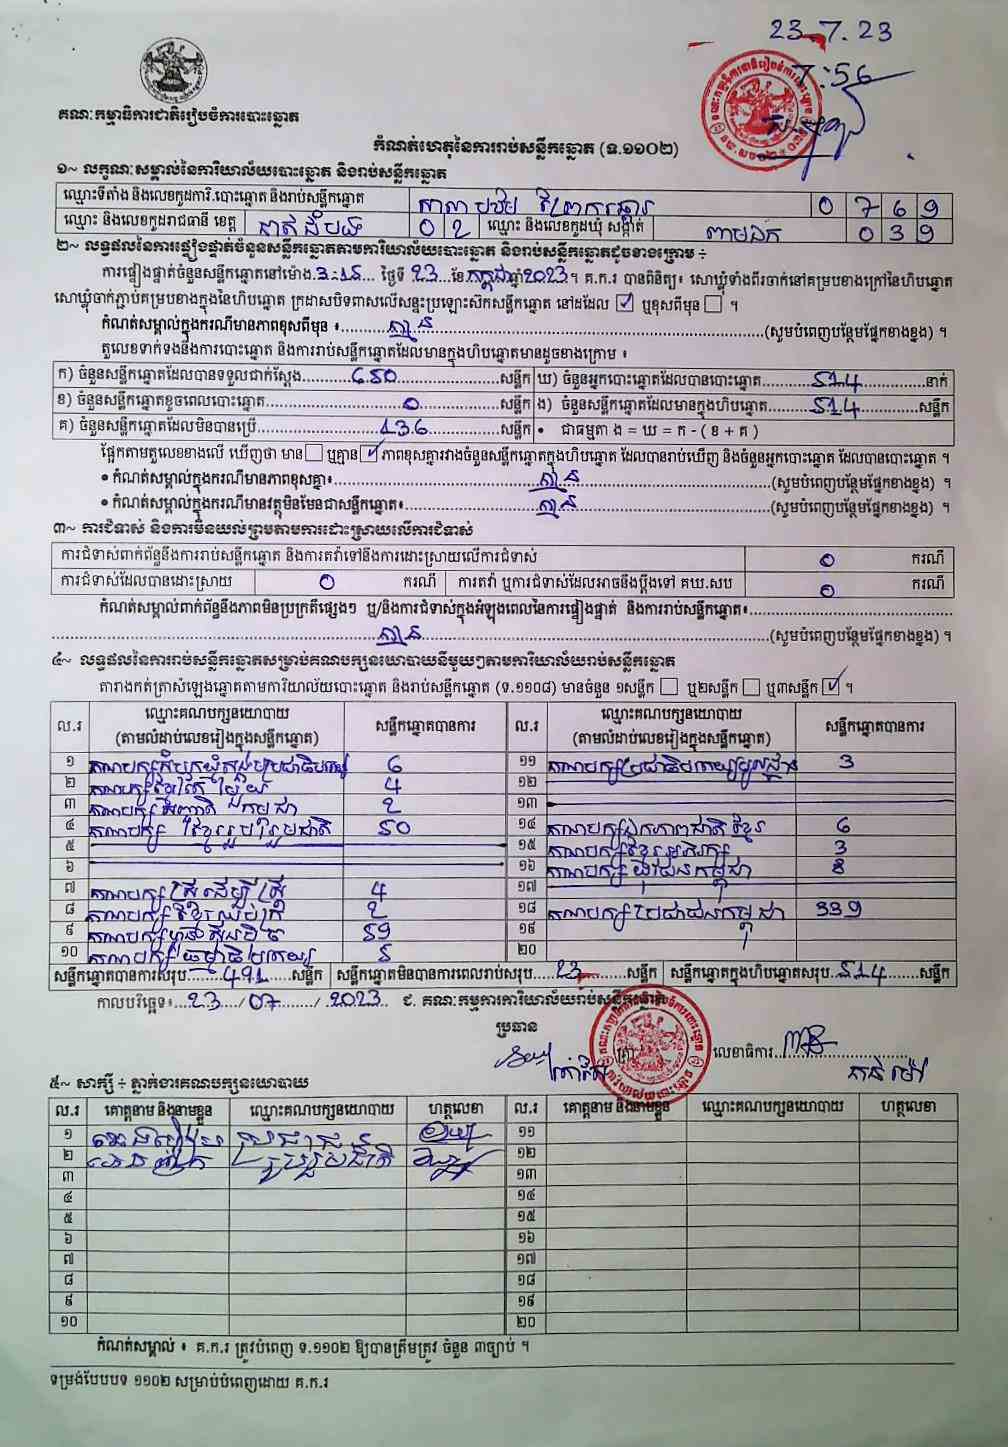 23.7.23
7:56
គណៈកម្មាធិការជាតិរៀបចំការបោះឆ្នោត
កំណត់ហេតុនៃការរាប់សន្លឹកឆ្នោត (ទ.១១០២)
១~ លក្ខណៈសម្គាល់នៃការិយាល័យបោះឆ្នោត និងរាប់សន្លឹកឆ្នោត
ឈ្មោះទីតាំង និងលេខកូដការិ.បោះឆ្នោត និងរាប់សន្លឹកឆ្នោត 0 7 6 9
ឈ្មោះ និងលេខកូដរាជធានី ខេត្ត បាត់ដំបង 0 2 ឈ្មោះ និងលេខកូដឃុំ សង្កាត់ ពាមឯក 0 3 9
២~ លទ្ធផលនៃការផ្ទៀងផ្ទាត់ចំនួនសន្លឹកឆ្នោតតាមការិយាល័យបោះឆ្នោត និងរាប់សន្លឹកឆ្នោតដូចខាងក្រោម ÷
ការផ្ទៀងផ្ទាត់ចំនួនសន្លឹកឆ្នោតនៅម៉ោង 3:15 ថ្ងៃទី 23 ខែ កក្កដា ឆ្នាំ 2023 ។ គ.ក.រ បានពិនិត្យ៖ សោឃ្លុំទាំងពីរចាក់នៅគម្របខាងក្រៅនៃហិបឆ្នោត
សោឃ្លុំចាក់ភ្ជាប់គម្របខាងក្នុងនៃហិបឆ្នោត ក្រដាសបិទពាសលើសន្ទះប្រឡោះសិកសន្លឹកឆ្នោត នៅដដែល ☑ ឬខុសពីមុន ☐ ។
កំណត់សម្គាល់ក្នុងករណីមានភាពខុសពីមុន ៖ គ្មាន (សូមបំពេញបន្ថែមផ្នែកខាងខ្នង) ។
តួលេខទាក់ទងនឹងការបោះឆ្នោត និងការរាប់សន្លឹកឆ្នោតដែលមានក្នុងហិបឆ្នោតមានដូចខាងក្រោម ៖
ក) ចំនួនសន្លឹកឆ្នោតដែលបានទទួលជាក់ស្តែង 650 សន្លឹក ឃ) ចំនួនអ្នកបោះឆ្នោតដែលបានបោះឆ្នោត 514 នាក់
ខ) ចំនួនសន្លឹកឆ្នោតខូចពេលបោះឆ្នោត 0 សន្លឹក ង) ចំនួនសន្លឹកឆ្នោតដែលមានក្នុងហិបឆ្នោត 514 សន្លឹក
គ) ចំនួនសន្លឹកឆ្នោតដែលមិនបានប្រើ 136 សន្លឹក • ជាធម្មតា ង = ឃ = ក - ( ខ + គ )
ផ្អែកតាមតួលេខខាងលើ ឃើញថា មាន ☐ ឬគ្មាន ☑ ភាពខុសគ្នារវាងចំនួនសន្លឹកឆ្នោតក្នុងហិបឆ្នោត ដែលបានរាប់ឃើញ និងចំនួនអ្នកបោះឆ្នោត ដែលបានបោះឆ្នោត ។
• កំណត់សម្គាល់ក្នុងករណីមានភាពខុសគ្នា៖ គ្មាន (សូមបំពេញបន្ថែមផ្នែកខាងខ្នង) ។
• កំណត់សម្គាល់ក្នុងករណីមានវត្ថុមិនមែនជាសន្លឹកឆ្នោត៖ គ្មាន (សូមបំពេញបន្ថែមផ្នែកខាងខ្នង) ។
៣~ ការជំទាស់ និងការមិនយល់ព្រមតាមការដោះស្រាយលើការជំទាស់
ការជំទាស់ពាក់ព័ន្ធនឹងការរាប់សន្លឹកឆ្នោត និងការតវ៉ាទៅនឹងការដោះស្រាយលើការជំទាស់ 0 ករណី
ការជំទាស់ដែលបានដោះស្រាយ 0 ករណី ការតវ៉ា ឬការជំទាស់ដែលអាចនឹងប្តឹងទៅ គឃ.សប 0 ករណី
កំណត់សម្គាល់ពាក់ព័ន្ធនឹងភាពមិនប្រក្រតីផ្សេងៗ ឬ/និងការជំទាស់ក្នុងអំឡុងពេលនៃការផ្ទៀងផ្ទាត់ និងការរាប់សន្លឹកឆ្នោត៖
គ្មាន (សូមបំពេញបន្ថែមផ្នែកខាងខ្នង) ។
៤~ លទ្ធផលនៃការរាប់សន្លឹកឆ្នោតសម្រាប់គណបក្សនយោបាយនីមួយៗតាមការិយាល័យរាប់សន្លឹកឆ្នោត
តារាងកត់ត្រាសំឡេងឆ្នោតតាមការិយាល័យបោះឆ្នោត និងរាប់សន្លឹកឆ្នោត (ទ.១១០៨) មានចំនួន ១សន្លឹក ☐ ឬ២សន្លឹក ☐ ឬ៣សន្លឹក ☑ ។
ល.រ ឈ្មោះគណបក្សនយោបាយ សន្លឹកឆ្នោតបានការ ល.រ ឈ្មោះគណបក្សនយោបាយ សន្លឹកឆ្នោតបានការ
(តាមលំដាប់លេខរៀងក្នុងសន្លឹកឆ្នោត) (តាមលំដាប់លេខរៀងក្នុងសន្លឹកឆ្នោត)
១ 6 ១១ គណបក្សប្រជាធិបតេយ្យមូលដ្ឋាន 3
២ គណបក្សខ្មែរតែមួយ 4 ១២
៣ គណបក្សកម្ពុជា 2 ១៣
៤ គណបក្សខ្មែររួបរួមជាតិ 50 ១៤ គណបក្សឯកភាពជាតិខ្មែរ 6
៥ ១៥ គណបក្សខ្មែរអភិរក្ស 3
៦ ១៦ គណបក្សយុវជនកម្ពុជា 8
៧ គណបក្សស្រីដើម្បីស្រី 4 ១៧
៨ គណបក្សខ្មែរឈប់ក្រ 2 ១៨ គណបក្សប្រជាជនកម្ពុជា 339
៩ គណបក្សហ៊្វុនស៊ិនប៉ិច 59 ១៩
១០ គណបក្សធម្មាធិបតេយ្យ 5 ២០
សន្លឹកឆ្នោតបានការសរុប 491 សន្លឹក សន្លឹកឆ្នោតមិនបានការពេលរាប់សរុប 23 សន្លឹក សន្លឹកឆ្នោតក្នុងហិបឆ្នោតសរុប 514 សន្លឹក
កាលបរិច្ឆេទ៖ 23 / 07 / 2023 ជ. គណៈកម្មការការិយាល័យរាប់សន្លឹកឆ្នោត
ប្រធាន
លេខាធិការ
៥~ សាក្សី ÷ ភ្នាក់ងារគណបក្សនយោបាយ
ល.រ គោត្តនាម និងនាមខ្លួន ឈ្មោះគណបក្សនយោបាយ ហត្ថលេខា ល.រ គោត្តនាម និងនាមខ្លួន ឈ្មោះគណបក្សនយោបាយ ហត្ថលេខា
១ ប្រជាជន ១១
២ រួបរួមជាតិ ១២
៣ ១៣
៤ ១៤
៥ ១៥
៦ ១៦
៧ ១៧
៨ ១៨
៩ ១៩
១០ ២០
កំណត់សម្គាល់ ៖ គ.ក.រ ត្រូវបំពេញ ទ.១១០២ ឱ្យបានត្រឹមត្រូវ ចំនួន ៣ច្បាប់ ។
ទម្រង់បែបបទ ១១០២ សម្រាប់បំពេញដោយ គ.ក.រ